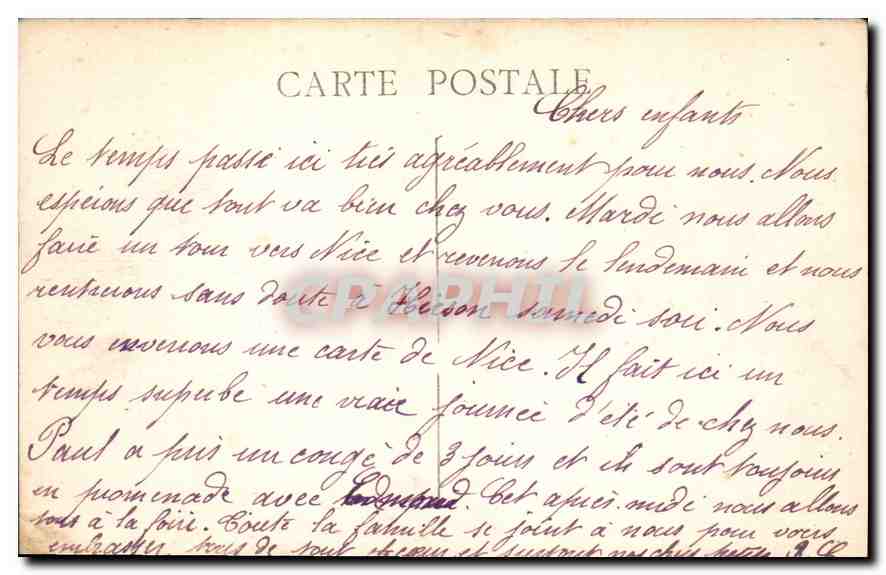 CARTE POSTALE
Chers enfants
Le temps passe ici très agréablement pour nous. Nous
espérons que tout va bien chez vous. Mardi nous allons
faire un tour vers Nice et revenons le lendemain et nous
rentrerons sans doute à Hirson samedi soir. Nous
vous enverrons une carte de Nice. Il fait ici un
temps superbe une vraie journée d'été de chez nous.
Paul a pris un congé de 3 jours et ils sont toujours
en promenade avec Edmond. Cet après-midi nous allons
tous à la foire. Toute la famille se joint à nous pour vous
embrasser tous de tout cœur et surtout nos chers petits
CPAPHIL